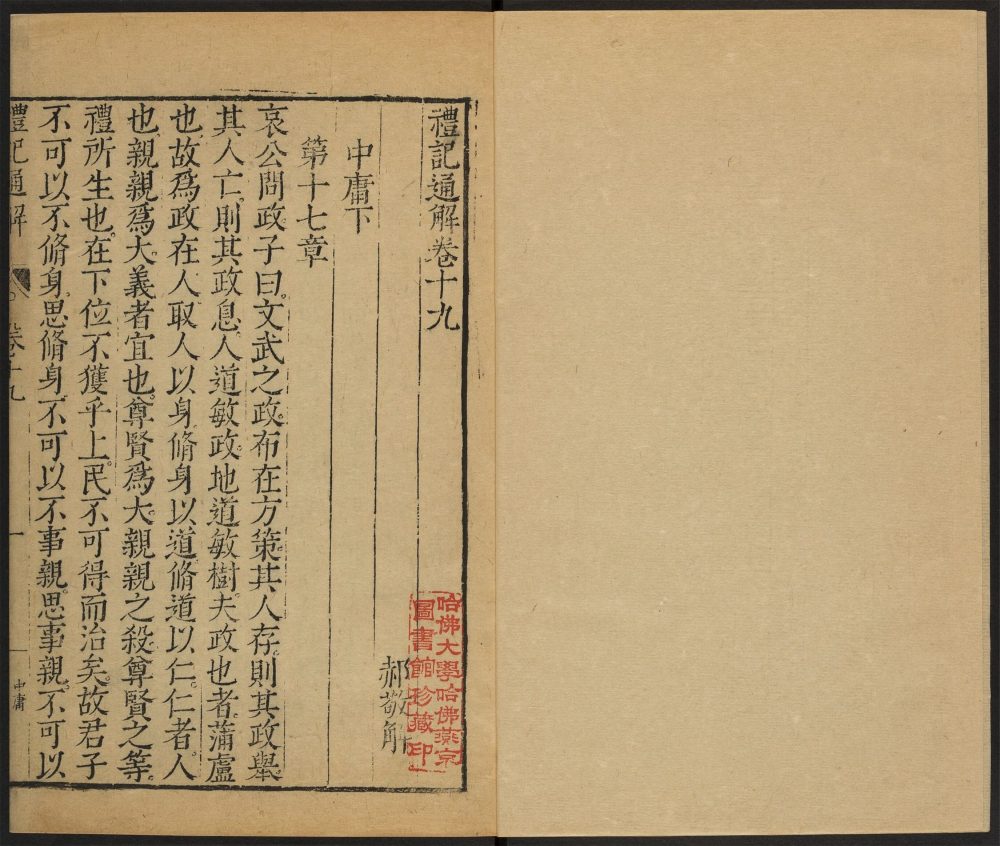 禮記通解卷十九
郝敬解
中庸下
第十七章
哀公問政子曰文武之政布在方策其人存則其政舉
其人亡則其政息人道敏政地道敏樹夫政也者蒲盧
也故爲政在人取人以身脩身以道脩道以仁仁者人
也親親爲大義者宜也尊賢爲大親親之殺尊賢之等
禮所生也在下位不獲乎上民不可得而治矣故君子
不可以不脩身思脩身不可以不事親思事親不可以
禮記通解 卷十九 一 中庸
哈佛大學哈佛燕京
圖書館珍藏印